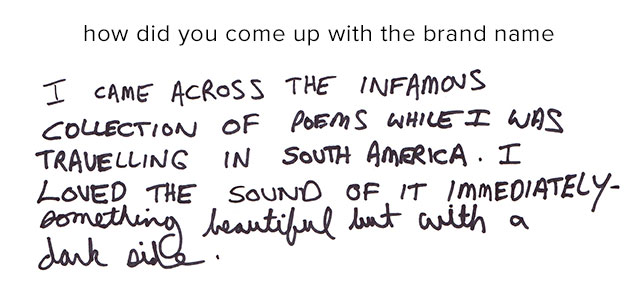 how did you come up with the brand name
I CAME ACROSS THE INFAMOUS
COLLECTION OF POEMS WHILE I WAS
TRAVELLING IN SOUTH AMERICA. I
LOVED THE SOUND OF IT IMMEDIATELY-
something beautiful but with a
dark side.